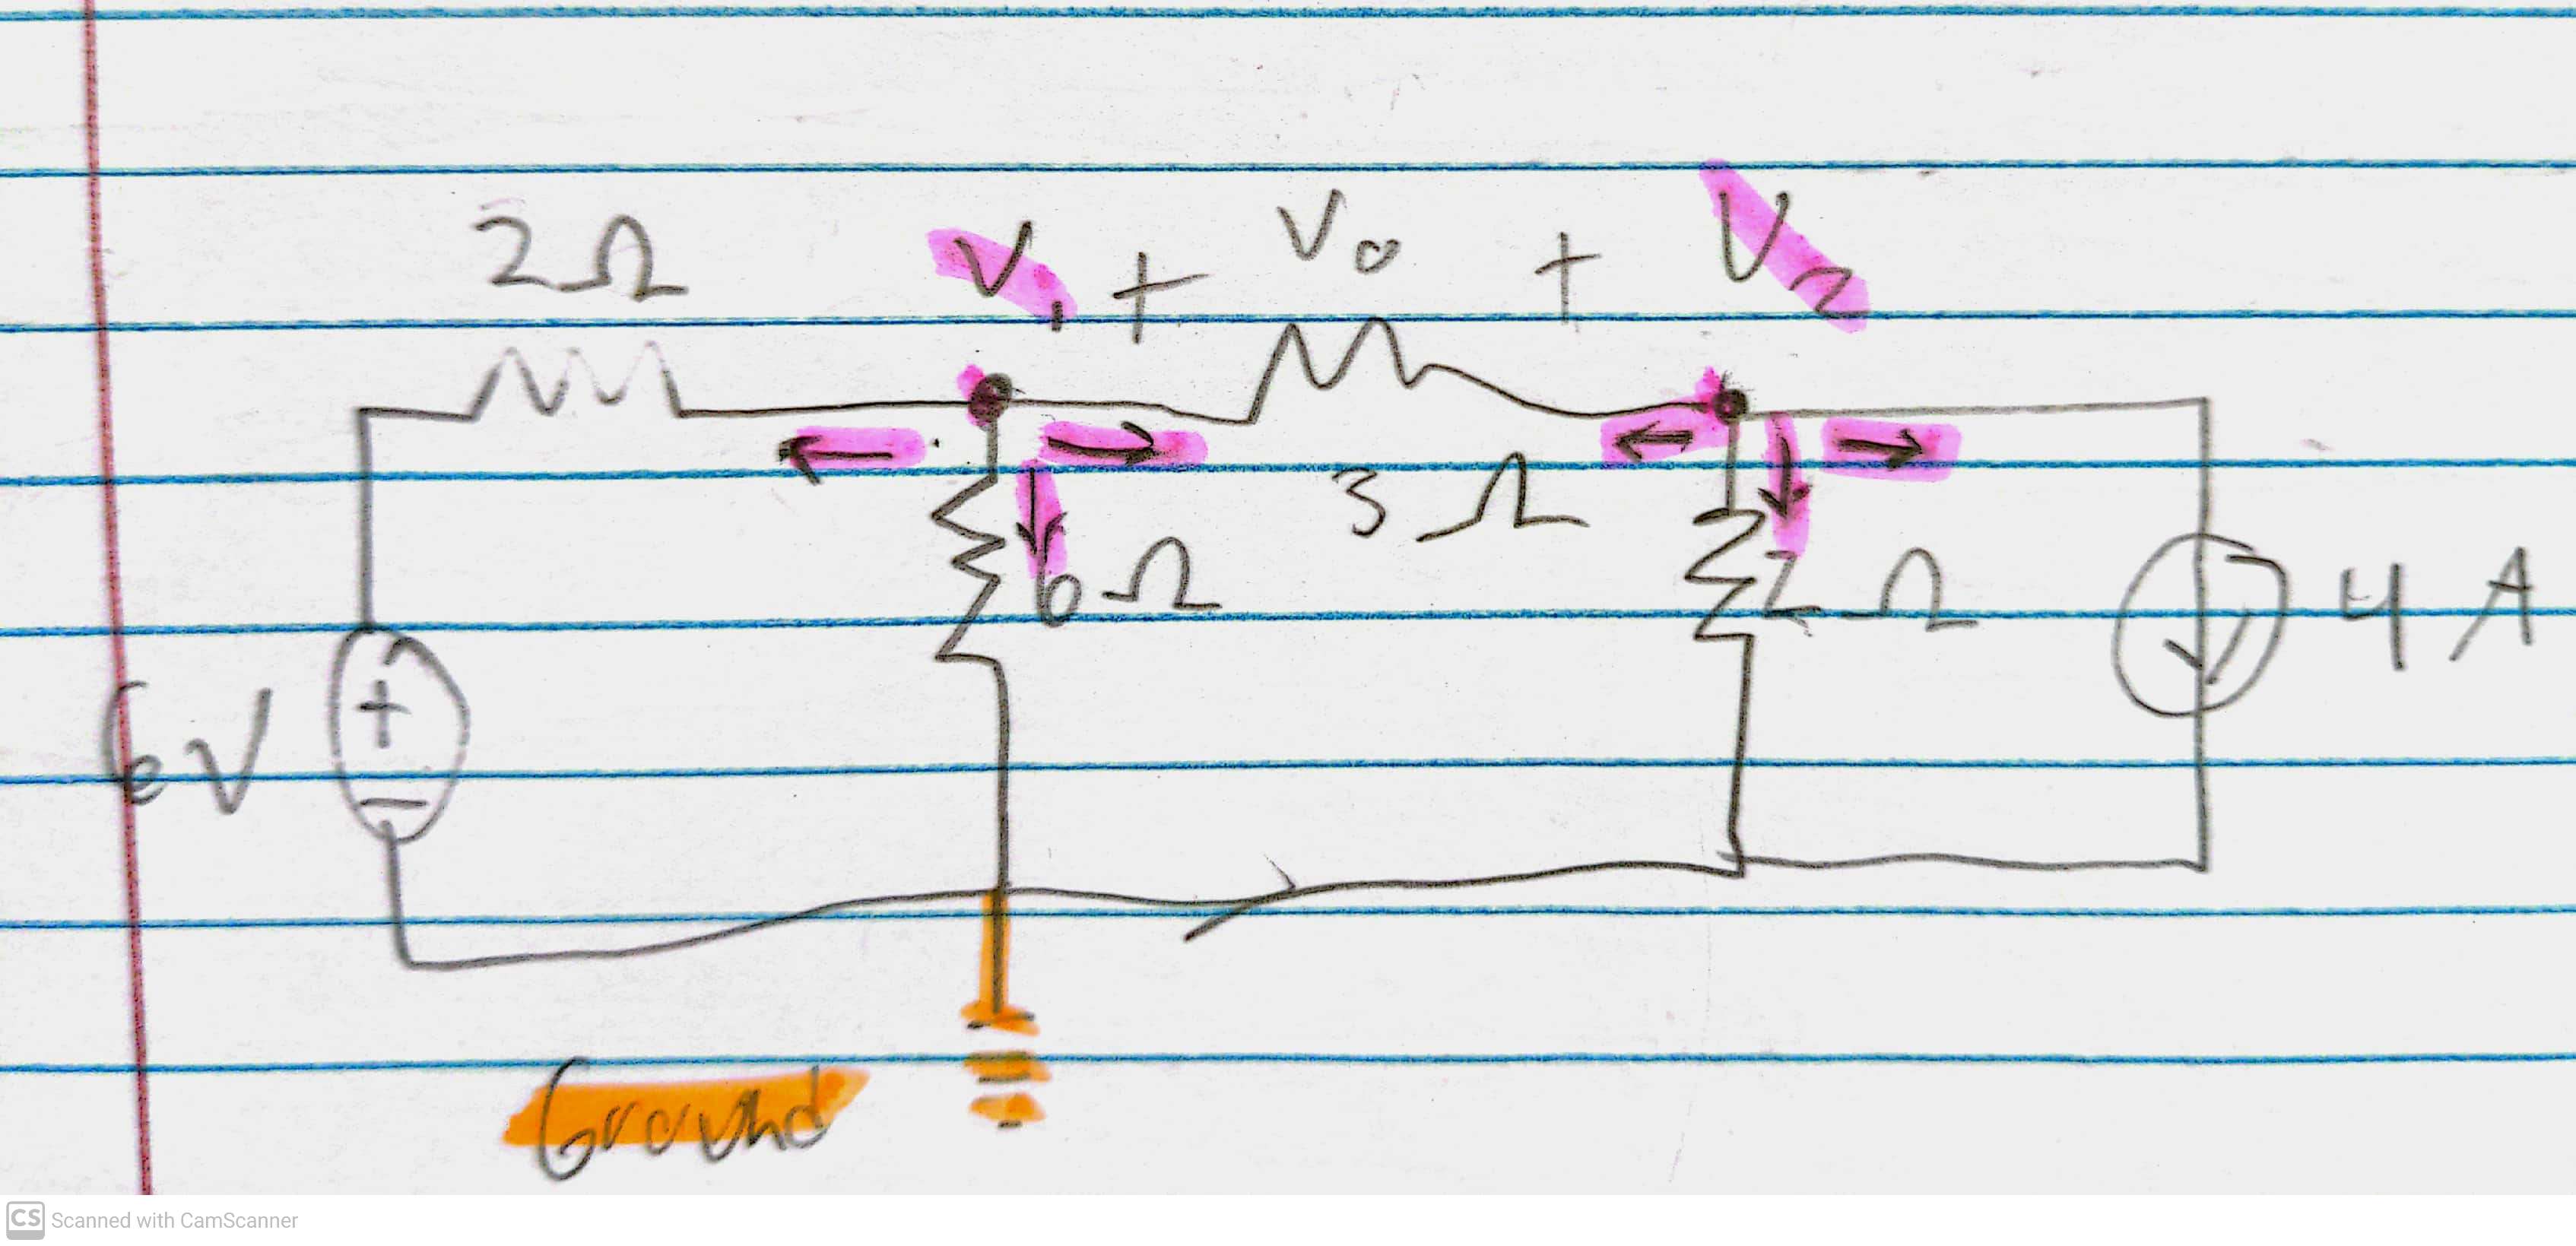 2Ω V₁ + V₀ + V₂
3Ω
6Ω 2Ω 4 A
6V +
−
Ground
CS Scanned with CamScanner